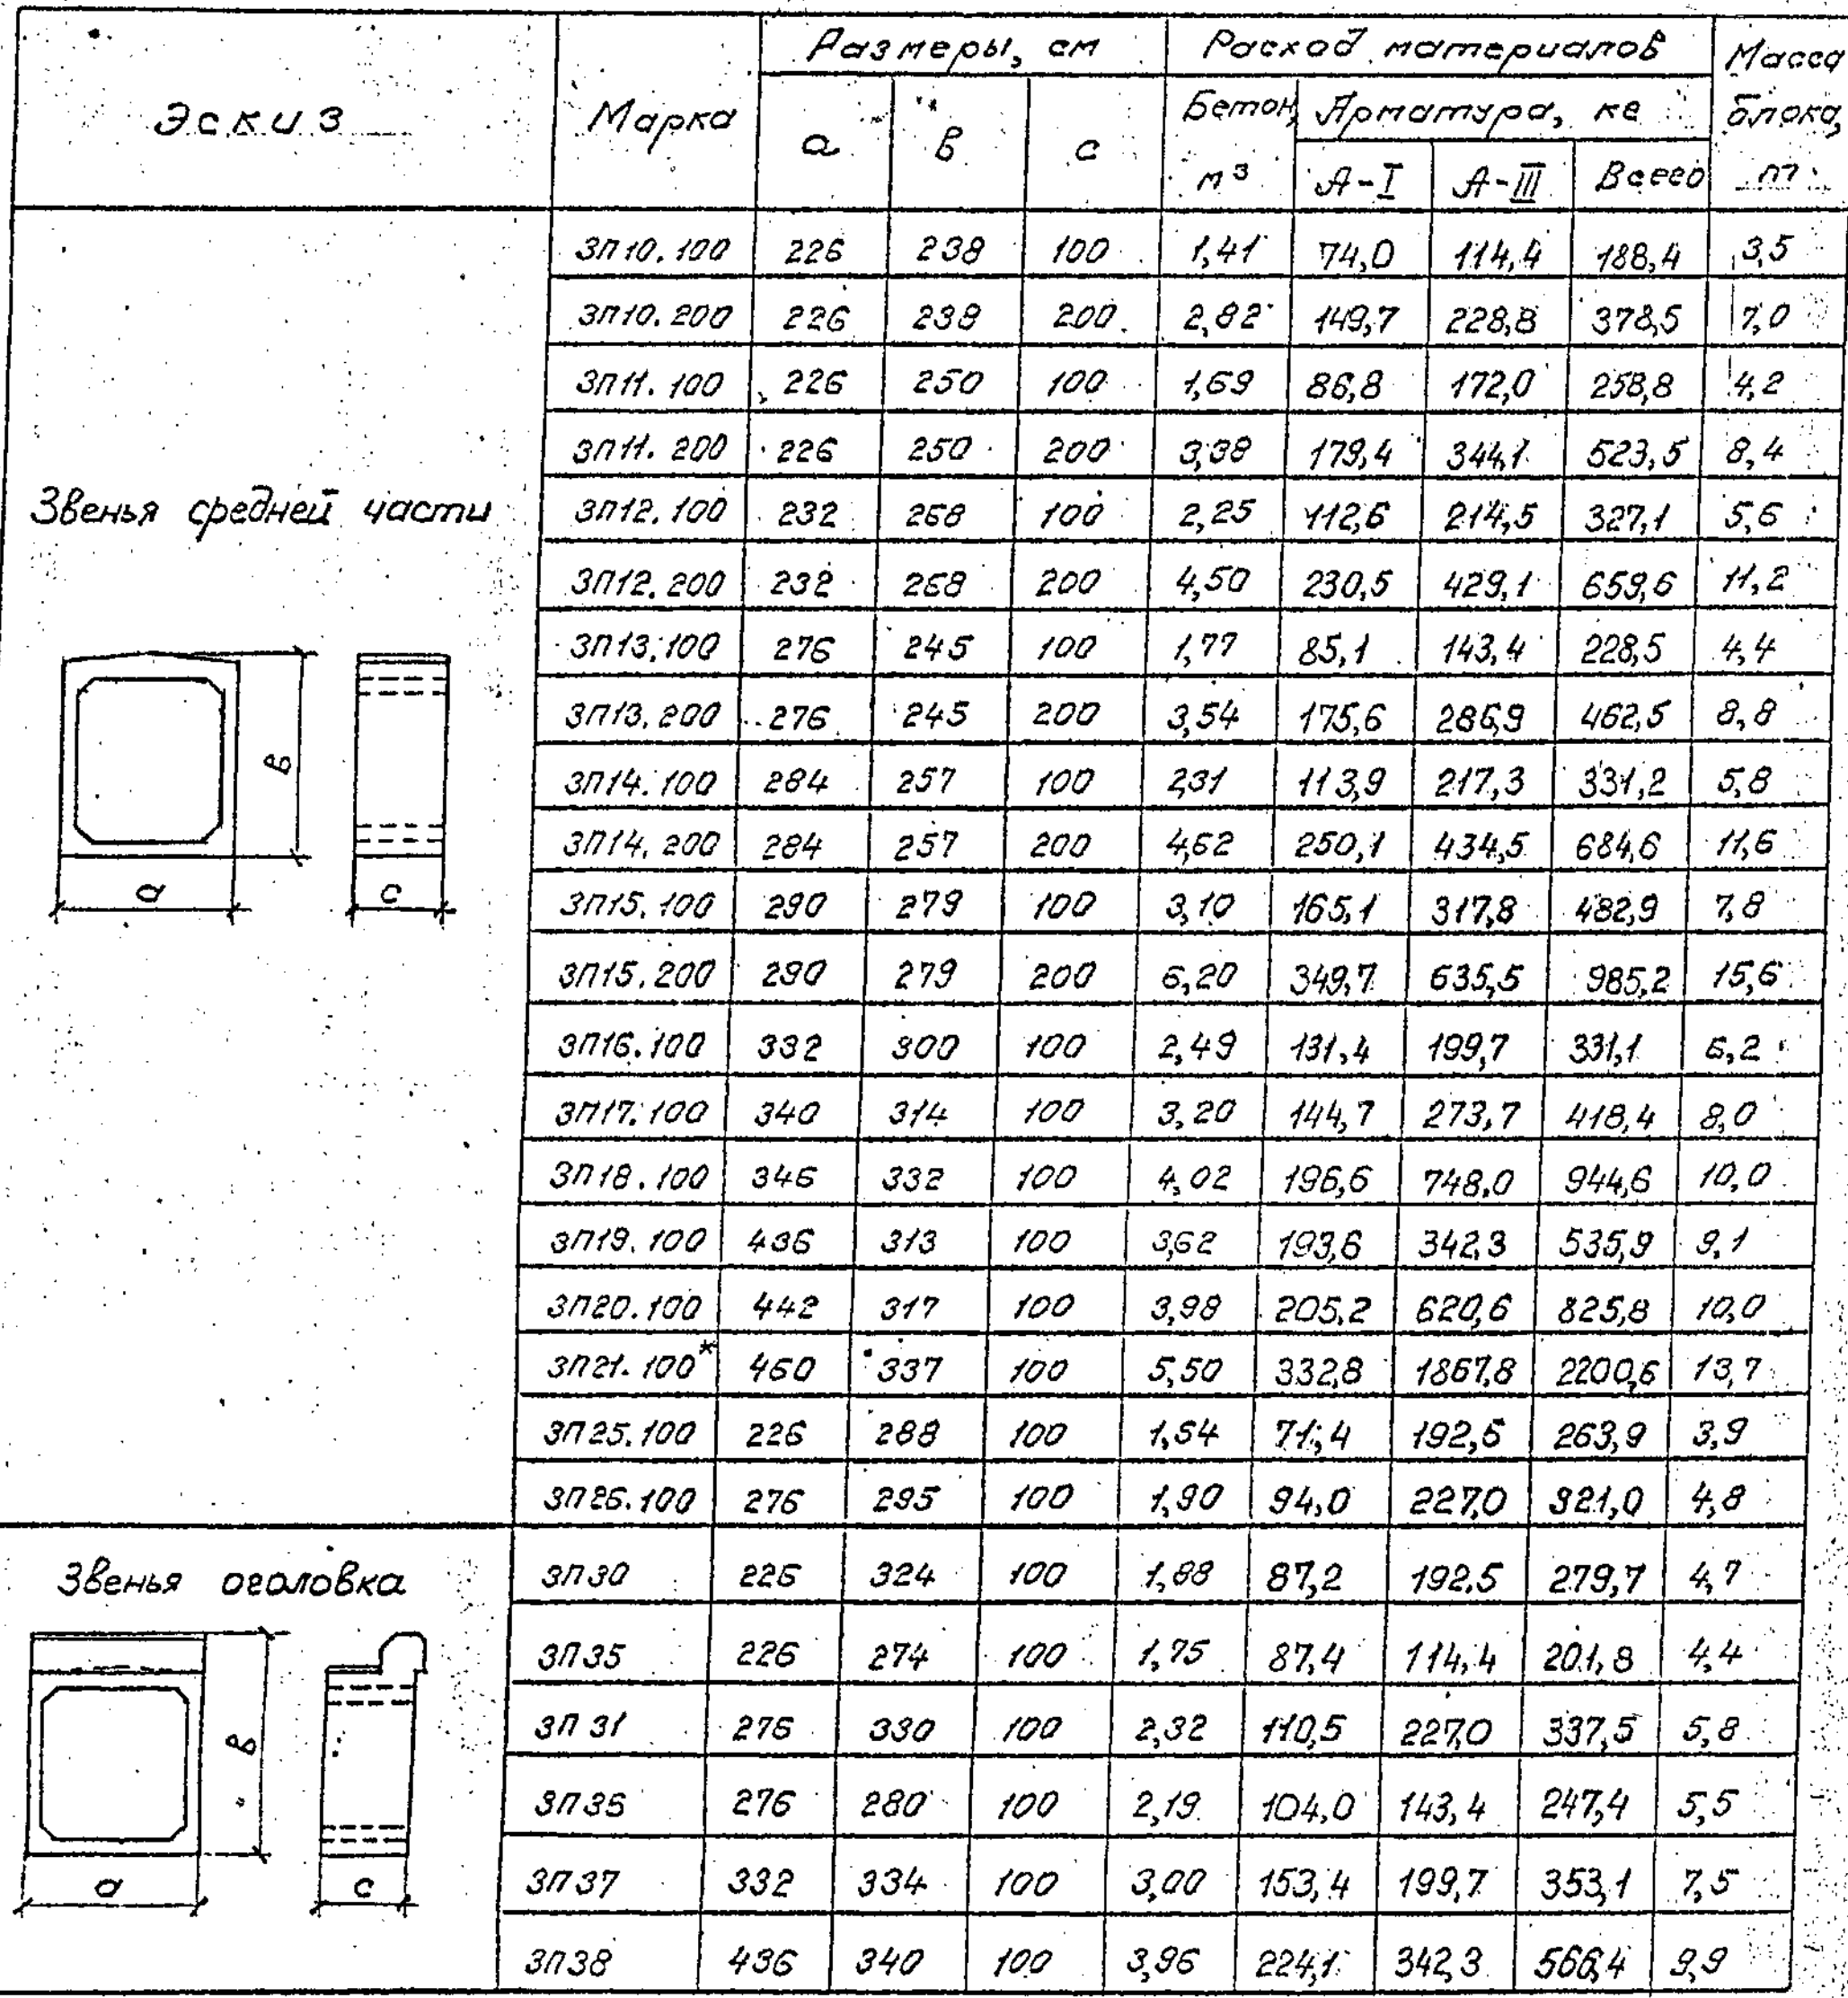 Эскиз Марка Размеры, см Расход материалов Масса блока, т
а в с Бетон, м³ Арматура, кг
А-I А-III Всего
Звенья средней части
ЗП10.100 226 238 100 1,41 74,0 114,4 188,4 3,5
ЗП10.200 226 238 200 2,82 149,7 228,8 378,5 7,0
ЗП11.100 226 250 100 1,69 86,8 172,0 258,8 4,2
ЗП11.200 226 250 200 3,38 179,4 344,1 523,5 8,4
ЗП12.100 232 268 100 2,25 112,6 214,5 327,1 5,6
ЗП12.200 232 268 200 4,50 230,5 429,1 659,6 11,2
ЗП13.100 276 245 100 1,77 85,1 143,4 228,5 4,4
ЗП13.200 276 245 200 3,54 175,6 286,9 462,5 8,8
ЗП14.100 284 257 100 2,31 113,9 217,3 331,2 5,8
ЗП14.200 284 257 200 4,62 250,1 434,5 684,6 11,6
ЗП15.100 290 279 100 3,10 165,1 317,8 482,9 7,8
ЗП15.200 290 279 200 6,20 349,7 635,5 985,2 15,6
ЗП16.100 332 300 100 2,49 131,4 199,7 331,1 6,2
ЗП17.100 340 314 100 3,20 144,7 273,7 418,4 8,0
ЗП18.100 346 332 100 4,02 196,6 748,0 944,6 10,0
ЗП19.100 436 313 100 3,62 193,6 342,3 535,9 9,1
ЗП20.100 442 317 100 3,98 205,2 620,6 825,8 10,0
ЗП21.100* 460 337 100 5,50 332,8 1867,8 2200,6 13,7
ЗП25.100 226 288 100 1,54 71,4 192,5 263,9 3,9
ЗП26.100 276 295 100 1,90 94,0 227,0 321,0 4,8
в
а с
Звенья оголовка
ЗП30 226 324 100 1,88 87,2 192,5 279,7 4,7
ЗП35 226 274 100 1,75 87,4 114,4 201,8 4,4
ЗП31 276 330 100 2,32 110,5 227,0 337,5 5,8
ЗП36 276 280 100 2,19 104,0 143,4 247,4 5,5
ЗП37 332 334 100 3,00 153,4 199,7 353,1 7,5
ЗП38 436 340 100 3,96 224,1 342,3 566,4 9,9
в
а с